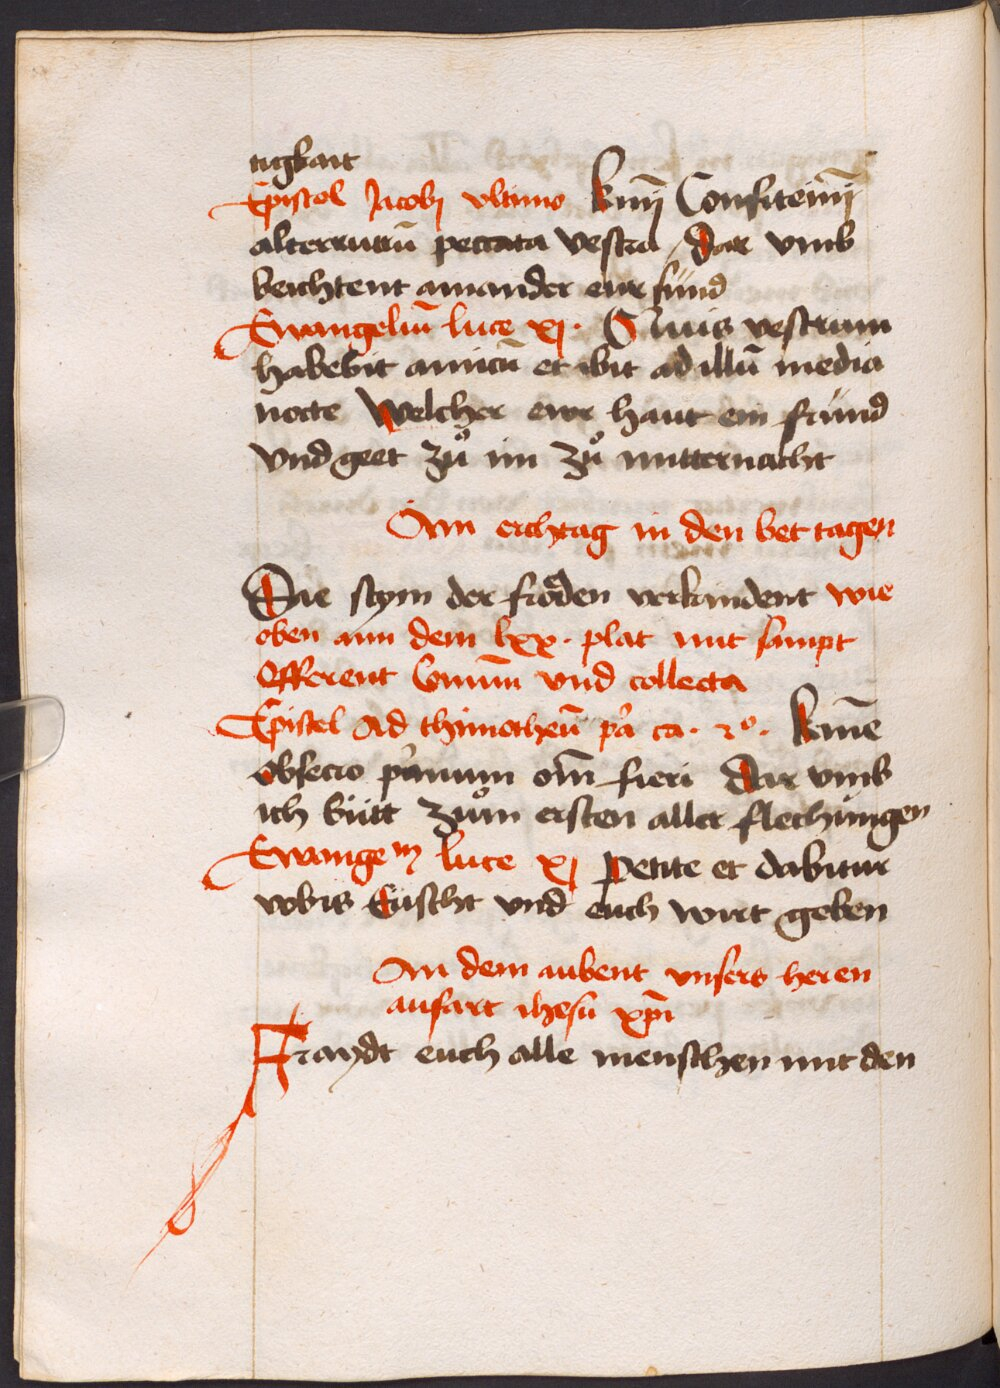 tigkait
Epistol Jacobi vltimo kmi Confitemi
alterrutrū peccata vestra / Dar vmb
beichtent ainander ewr sünd
Ewangeliū luce xj. Quis vestrum
habebit amicū et ibit ad illū media
nocte Welcher ewr haut ein fründ
vnd geet zuͦ im zuͦ mitternacht
Am erchtag in den bet tagen
Die stym der fröden verkündent wie
oben ann dem lxx. plat mit sampt
Offerent Comūn vnd collecta
Epistel ad thimotheū pͥa ca. 2º. kmē
obsecro pͥmum om̄ fieri Dar vmb
ich bütt zuͦm ersten aller flechüngen
Ewangeᵐ luce xj Petite et dabitur
vobis Eischt vnd euch wirt geben
An dem aubent vnsers heren
aufart ihesu xp̄i
Fraydt euch alle menschen mit den